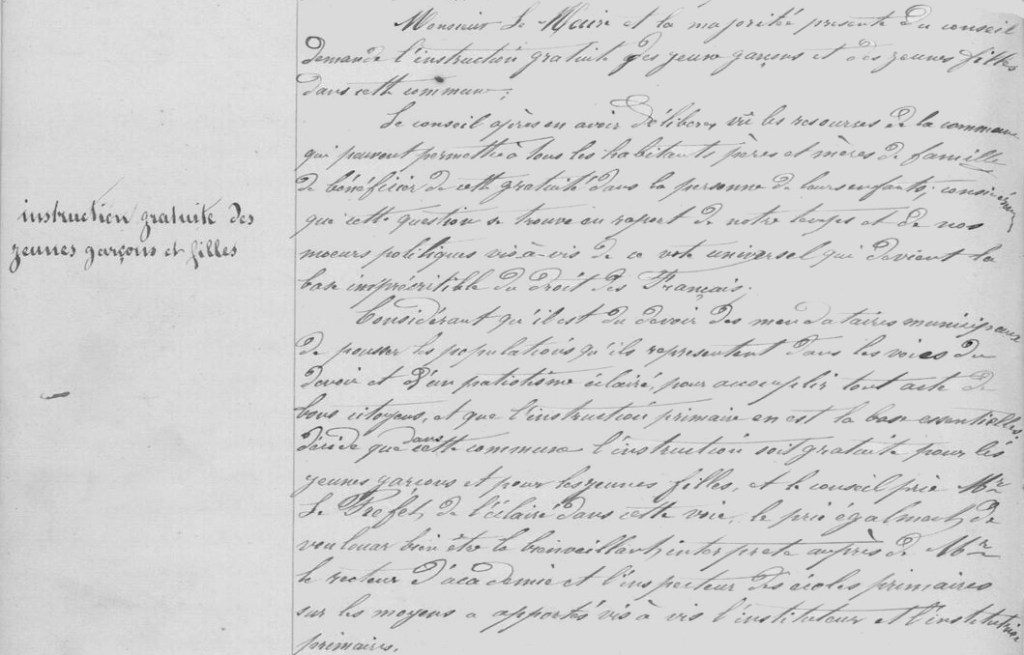 instruction gratuite des
jeunes garçons et filles
Monsieur Le Maire et la majorité presente du conseil
demande l'instruction gratuite des jeunes garçons et des jeunes filles
dans cette commune;
Le conseil après en avoir déliberer, vu les resources de la commune
qui peuvent permettre à tous les habitants pères et mères de famille
de bénéficier de cette gratuité dans la personne de leurs enfants; considérant
que cette question se trouve en raport de notre temps et de nos
moeurs politiques vis-à-vis de ce vote universel qui devient la
base impréscritible du droit des Français.
Considérant qu'il est du devoir des mandataires municipaux
de pousser les populations qu'ils representent dans les voies du
devoir et d'un patiotisme éclairé, pour accomplir tout acte de
bons citoyens, et que l'instruction primaire en est la base essentielle,
décide que dans cette commune l'instruction soit gratuite pour les
jeunes garçons et pour les jeunes filles, et le conseil prie Mr
Le Préfet, de l'éclairé dans cette voie, le prie également, de
voulouar bien être le bienveillant, interprete auprès de Mr
le recteur d'academie et l'inspecteur des écoles primaires
sur les moyens a apportés vis à vis l'instituteur et l'institutrice
primaires.